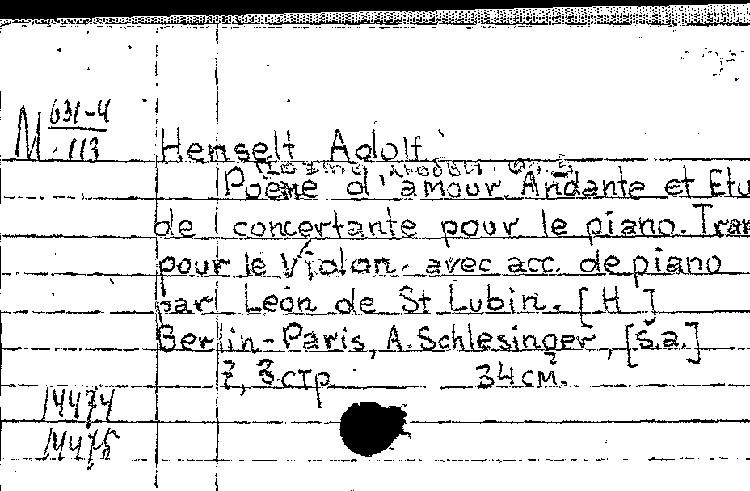 M 631-4
113
Henselt Adolf
Poème d'amour Andante et Etu
de concertante pour le piano. Tran
pour le Violon. avec acc. de piano
par Leon de St Lubin. [H ]
Berlin-Paris, A. Schlesinger, [s.a.]
7, 3 стр 34 см.
14474
14475